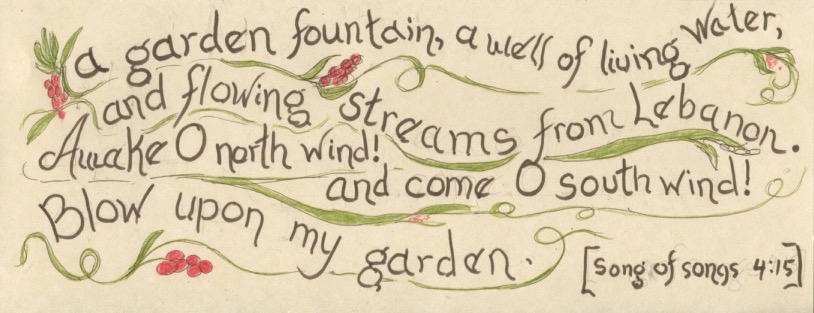 a garden fountain, a well of living water,
and flowing streams from Lebanon.
Awake O north wind!
and come O south wind!
Blow upon my garden.
[Song of songs 4:15]